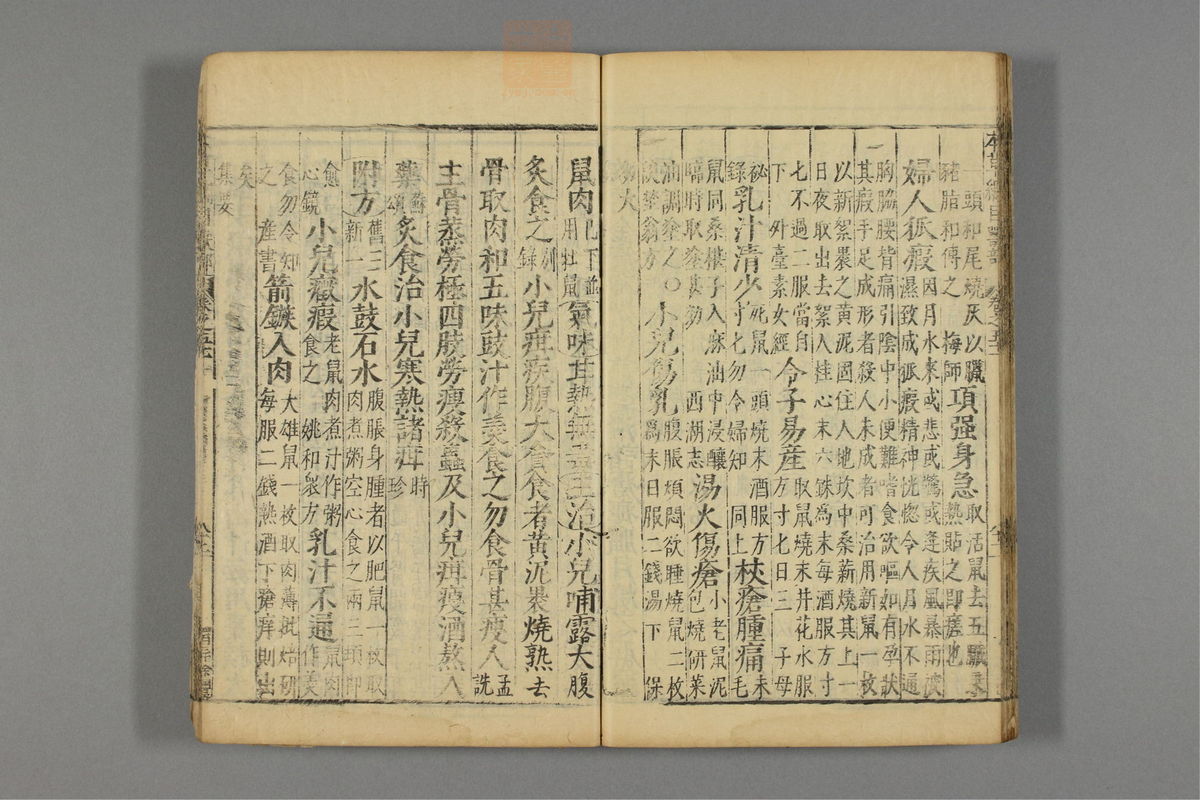 本草綱目獸部 卷之五十一
一頭和尾燒灰以臘
豬脂和傅之 梅師
項强身急
取活鼠去五臟乘
熱貼之即瘥也
婦人狐瘕
因月水來或悲或驚或逢疾風暴雨被
濕致成狐瘕精神恍惚令人月水不通
胸脇腰背痛引陰中小便難嗜食欲嘔如有孕狀
其瘕手足成形者殺人未成者可治用新鼠一枚
以新絮裹之黃泥固住入地坎中桑薪燒其上一
日夜取出去絮入桂心末六銖爲末每酒服方寸
七不過二服當自
下 外臺素女經
令子易産
取鼠燒末井花水服
方寸七日三 子母
祕
錄
乳汁清少
死鼠一頭燒末酒服方
寸七勿令婦知 同上
杖瘡腫痛
未
毛
鼠同桑椹子入麻油中浸釀
臨時取塗甚効 西湖志
湯火傷瘡
小老鼠泥
包燒研菜
油調塗之〇
談埜翁方
小兒傷乳
腹脹煩悶欲睡燒鼠二枚
爲末日服二錢湯下 保
幼大
鼠肉
已下並
用牡鼠
氣味甘熱無毒主治小兒哺露大腹
炙食之
別
錄
小兒疳疾腹大貪食者黃泥裹燒熟去
骨取肉和五味豉汁作羹食之勿食骨甚瘦人
孟
詵
主骨蒸勞極四肢勞瘦殺蟲及小兒疳瘦酒熬入
藥
蘇
頌
炙食治小兒寒熱諸疳
時
珍
附方
舊三
新一
水鼓石水
腹脹身腫者以肥鼠一枚取
肉煮粥空心食之兩三頓即
愈
心鏡
小兒癥瘕
老鼠肉煮汁作粥
食之 姚和衆方
乳汁不通
鼠肉
作羹
食勿令知
之 産書
箭鏃入肉
大雄鼠一枚取肉薄批焙研
每服二錢熱酒下瘡痒則出
矣
集要